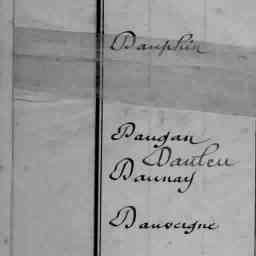 Dauphin
Daugan
Dauleu
Daunay
Dauvergne